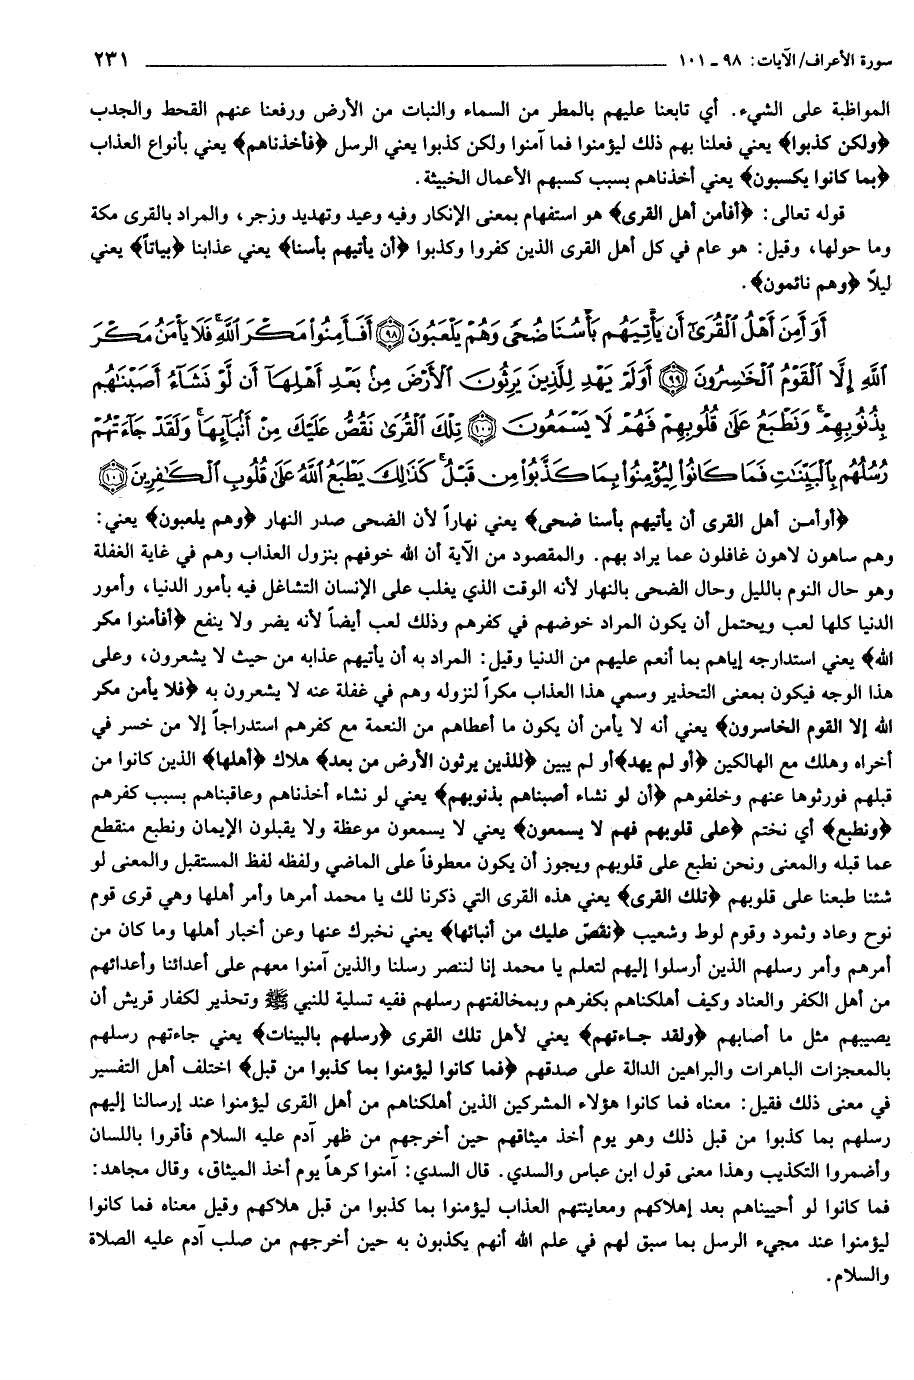 سورة الأعراف/ الآيات: ٩٨ ـ ١٠١ ٢٣١
المواظبة على الشيء. أي تابعنا عليهم بالمطر من السماء والنبات من الأرض ورفعنا عنهم القحط والجدب
﴿ولكن كذبوا﴾ يعني فعلنا بهم ذلك ليؤمنوا فما آمنوا ولكن كذبوا يعني الرسل ﴿فأخذناهم﴾ يعني بأنواع العذاب
﴿بما كانوا يكسبون﴾ يعني أخذناهم بسبب كسبهم الأعمال الخبيثة.
قوله تعالى: ﴿أفأمن أهل القرى﴾ هو استفهام بمعنى الإنكار وفيه وعيد وتهديد وزجر، والمراد بالقرى مكة
وما حولها، وقيل: هو عام في كل أهل القرى الذين كفروا وكذبوا ﴿أن يأتيهم بأسنا﴾ يعني عذابنا ﴿بياتاً﴾ يعني
ليلاً ﴿وهم نائمون﴾.
أَوَ أَمِنَ أَهْلُ الْقُرَىٰ أَن يَأْتِيَهُم بَأْسُنَا ضُحًى وَهُمْ يَلْعَبُونَ ﴿٩٨﴾ أَفَأَمِنُوا مَكْرَ اللَّهِ فَلَا يَأْمَنُ مَكْرَ
اللَّهِ إِلَّا الْقَوْمُ الْخَاسِرُونَ ﴿٩٩﴾ أَوَلَمْ يَهْدِ لِلَّذِينَ يَرِثُونَ الْأَرْضَ مِنْ بَعْدِ أَهْلِهَا أَن لَّوْ نَشَاءُ أَصَبْنَاهُم
بِذُنُوبِهِمْ وَنَطْبَعُ عَلَىٰ قُلُوبِهِمْ فَهُمْ لَا يَسْمَعُونَ ﴿١٠٠﴾ تِلْكَ الْقُرَىٰ نَقُصُّ عَلَيْكَ مِنْ أَنْبَائِهَا وَلَقَدْ جَاءَتْهُمْ
رُسُلُهُم بِالْبَيِّنَاتِ فَمَا كَانُوا لِيُؤْمِنُوا بِمَا كَذَّبُوا مِن قَبْلُ كَذَٰلِكَ يَطْبَعُ اللَّهُ عَلَىٰ قُلُوبِ الْكَافِرِينَ ﴿١٠١﴾
﴿أوأمـن أهل القرى أن يأتيهم بأسنا ضحى﴾ يعني نهاراً لأن الضحى صدر النهار ﴿وهم يلعبون﴾ يعني:
وهم ساهون لاهون غافلون عما يراد بهم. والمقصود من الآية أن الله خوفهم بنزول العذاب وهم في غاية الغفلة
وهو حال النوم بالليل وحال الضحى بالنهار لأنه الوقت الذي يغلب على الإنسان التشاغل فيه بأمور الدنيا، وأمور
الدنيا كلها لعب ويحتمل أن يكون المراد خوضهم في كفرهم وذلك لعب أيضاً لأنه يضر ولا ينفع ﴿أفأمنوا مكر
الله﴾ يعني استدارجه إياهم بما أنعم عليهم من الدنيا وقيل: المراد به أن يأتيهم عذابه من حيث لا يشعرون، وعلى
هذا الوجه فيكون بمعنى التحذير وسمي هذا العذاب مكراً لنزوله وهم في غفلة عنه لا يشعرون به ﴿فلا يأمن مكر
الله إلا القوم الخاسرون﴾ يعني أنه لا يأمن أن يكون ما أعطاهم من النعمة مع كفرهم استدراجاً إلا من خسر في
أخراه وهلك مع الهالكين ﴿أو لم يهد﴾أو لم يبين ﴿للذين يرثون الأرض من بعد﴾ هلاك ﴿أهلها﴾ الذين كانوا من
قبلهم فورثوها عنهم وخلفوهم ﴿أن لو نشاء أصبناهم بذنوبهم﴾ يعني لو نشاء أخذناهم وعاقبناهم بسبب كفرهم
﴿ونطبع﴾ أي نختم ﴿على قلوبهم فهم لا يسمعون﴾ يعني لا يسمعون موعظة ولا يقبلون الإيمان ونطبع منقطع
عما قبله والمعنى ونحن نطبع على قلوبهم ويجوز أن يكون معطوفاً على الماضي ولفظه لفظ المستقبل والمعنى لو
شئنا طبعنا على قلوبهم ﴿تلك القرى﴾ يعني هذه القرى التي ذكرنا لك يا محمد أمرها وأمر أهلها وهي قرى قوم
نوح وعاد وثمود وقوم لوط وشعيب ﴿نقصّ عليك من أنبائها﴾ يعني نخبرك عنها وعن أخبار أهلها وما كان من
أمرهم وأمر رسلهم الذين أرسلوا إليهم لتعلم يا محمد إنا لننصر رسلنا والذين آمنوا معهم على أعدائنا وأعدائهم
من أهل الكفر والعناد وكيف أهلكناهم بكفرهم وبمخالفتهم رسلهم ففيه تسلية للنبي ﷺ وتحذير لكفار قريش أن
يصيبهم مثل ما أصابهم ﴿ولقد جـاءتهم﴾ يعني لأهل تلك القرى ﴿رسلهم بالبينات﴾ يعني جاءتهم رسلهم
بالمعجزات الباهرات والبراهين الدالة على صدقهم ﴿فما كانوا ليؤمنوا بما كذبوا من قبل﴾ اختلف أهل التفسير
في معنى ذلك فقيل: معناه فما كانوا هؤلاء المشركين الذين أهلكناهم من أهل القرى ليؤمنوا عند إرسالنا إليهم
رسلهم بما كذبوا من قبل ذلك وهو يوم أخذ ميثاقهم حين أخرجهم من ظهر آدم عليه السلام فأقروا باللسان
وأضمروا التكذيب وهذا معنى قول ابن عباس والسدي. قال السدي: آمنوا كرهاً يوم أخذ الميثاق، وقال مجاهد:
فما كانوا لو أحييناهم بعد إهلاكهم ومعاينتهم العذاب ليؤمنوا بما كذبوا من قبل هلاكهم وقيل معناه فما كانوا
ليؤمنوا عند مجيء الرسل بما سبق لهم في علم الله أنهم يكذبون به حين أخرجهم من صلب آدم عليه الصلاة
والسلام.